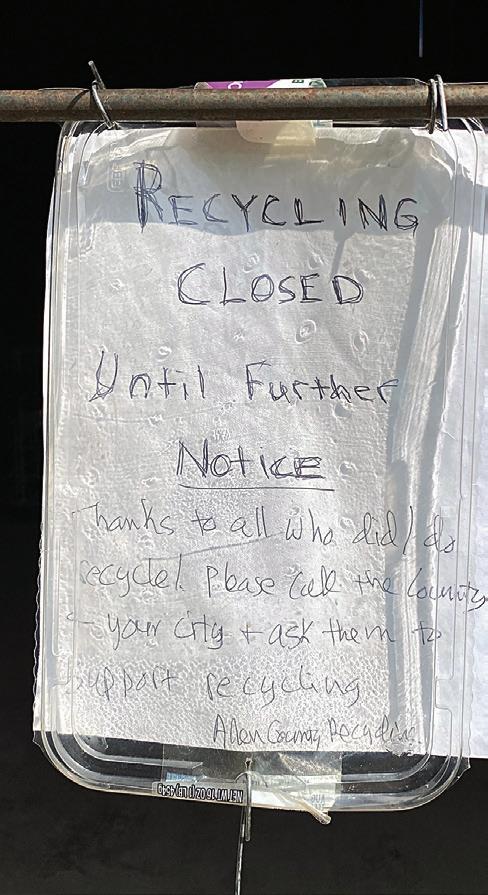 RECYCLING
CLOSED
Until Further
NOTICE
Thanks to all who did/do
recycle! Please call the County
& your city + ask them to
support recycling
Allen County Recycling
NET WT 16 OZ (1 LB) 454g